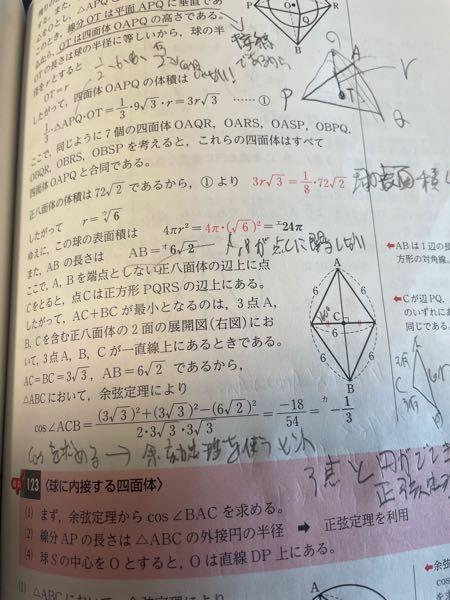 心をOとし、△APQ
このとき、線分OTは平面APQに垂直であ
るから、OTは四面体OAPQの高さである。
OTの長さは球の半径に等しいから、球の半
径をrとすると
OT=r
したがって、四面体OAPQの体積は
1/3・△APQ・OT=1/3・9√3・r=3r√3 ……①
ここで、同じように7個の四面体OAQR, OARS, OASP, OBPQ,
OBQR, OBRS, OBSPを考えると、これらの四面体はすべて
四面体OAPQと合同である。
正八面体の体積は72√2であるから、①より 3r√3=1/8・72√2
したがって r=√6
ゆえに、この球の表面積は 4πr²=4π・(√6)²=24π
また、ABの長さは AB=6√2
ここで、A, Bを端点としない正八面体の辺上に点
Cをとると、点Cは正方形PQRSの辺上にある。
したがって、AC+BCが最小となるのは、3点A,
B, Cを含む正八面体の2面の展開図(右図)にお
いて、3点A, B, Cが一直線上にあるときである。
AC=BC=3√3, AB=6√2であるから、
△ABCにおいて、余弦定理により
cos∠ACB=((3√3)²+(3√3)²-(6√2)²)/(2・3√3・3√3)=-18/54=-1/3
←ABは1辺の長
方形の対角線。
←Cが辺PQ,
のいずれにお
同じである。
P
O
R
Q
P
T
r
A
6
6
C
6
6
B
cosを求める→余弦定理を使うヒント
3点と円がでて
正弦定
123 〈球に内接する四面体〉
(1) まず、余弦定理からcos∠BACを求める。
(2) 線分APの長さは△ABCの外接円の半径 ➡ 正弦定理を利用
(4) 球Sの中心をOとすると、Oは直線DP上にある。
(1) △ABCにおいて、余弦定理により
A
←余弦